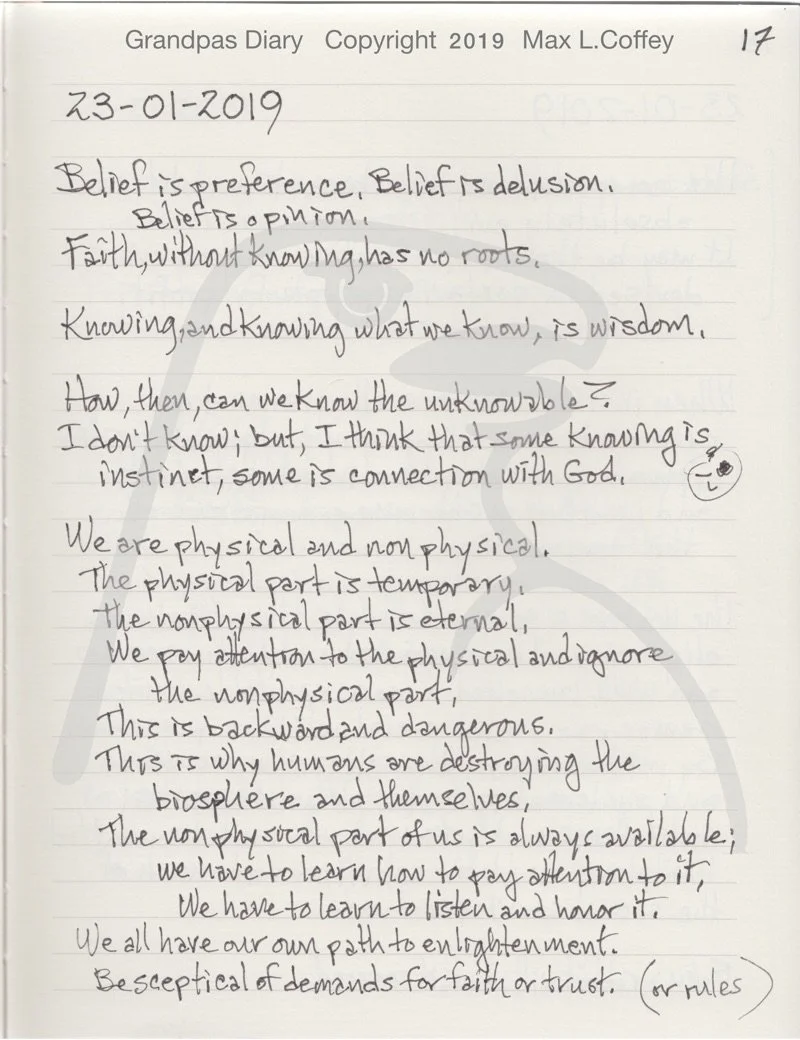 Grandpas Diary Copyright 2019 Max L.Coffey 17
23-01-2019
Belief is preference. Belief is delusion.
Belief is opinion.
Faith, without knowing, has no roots.
Knowing, and knowing what we know, is wisdom.
How, then, can we know the unknowable?
I don't know; but, I think that some knowing is
instinct, some is connection with God.
We are physical and non physical.
The physical part is temporary.
The nonphysical part is eternal.
We pay attention to the physical and ignore
the nonphysical part.
This is backward and dangerous.
This is why humans are destroying the
biosphere and themselves.
The nonphysical part of us is always available;
we have to learn how to pay attention to it,
We have to learn to listen and honor it.
We all have our own path to enlightenment.
Be sceptical of demands for faith or trust. (or rules)